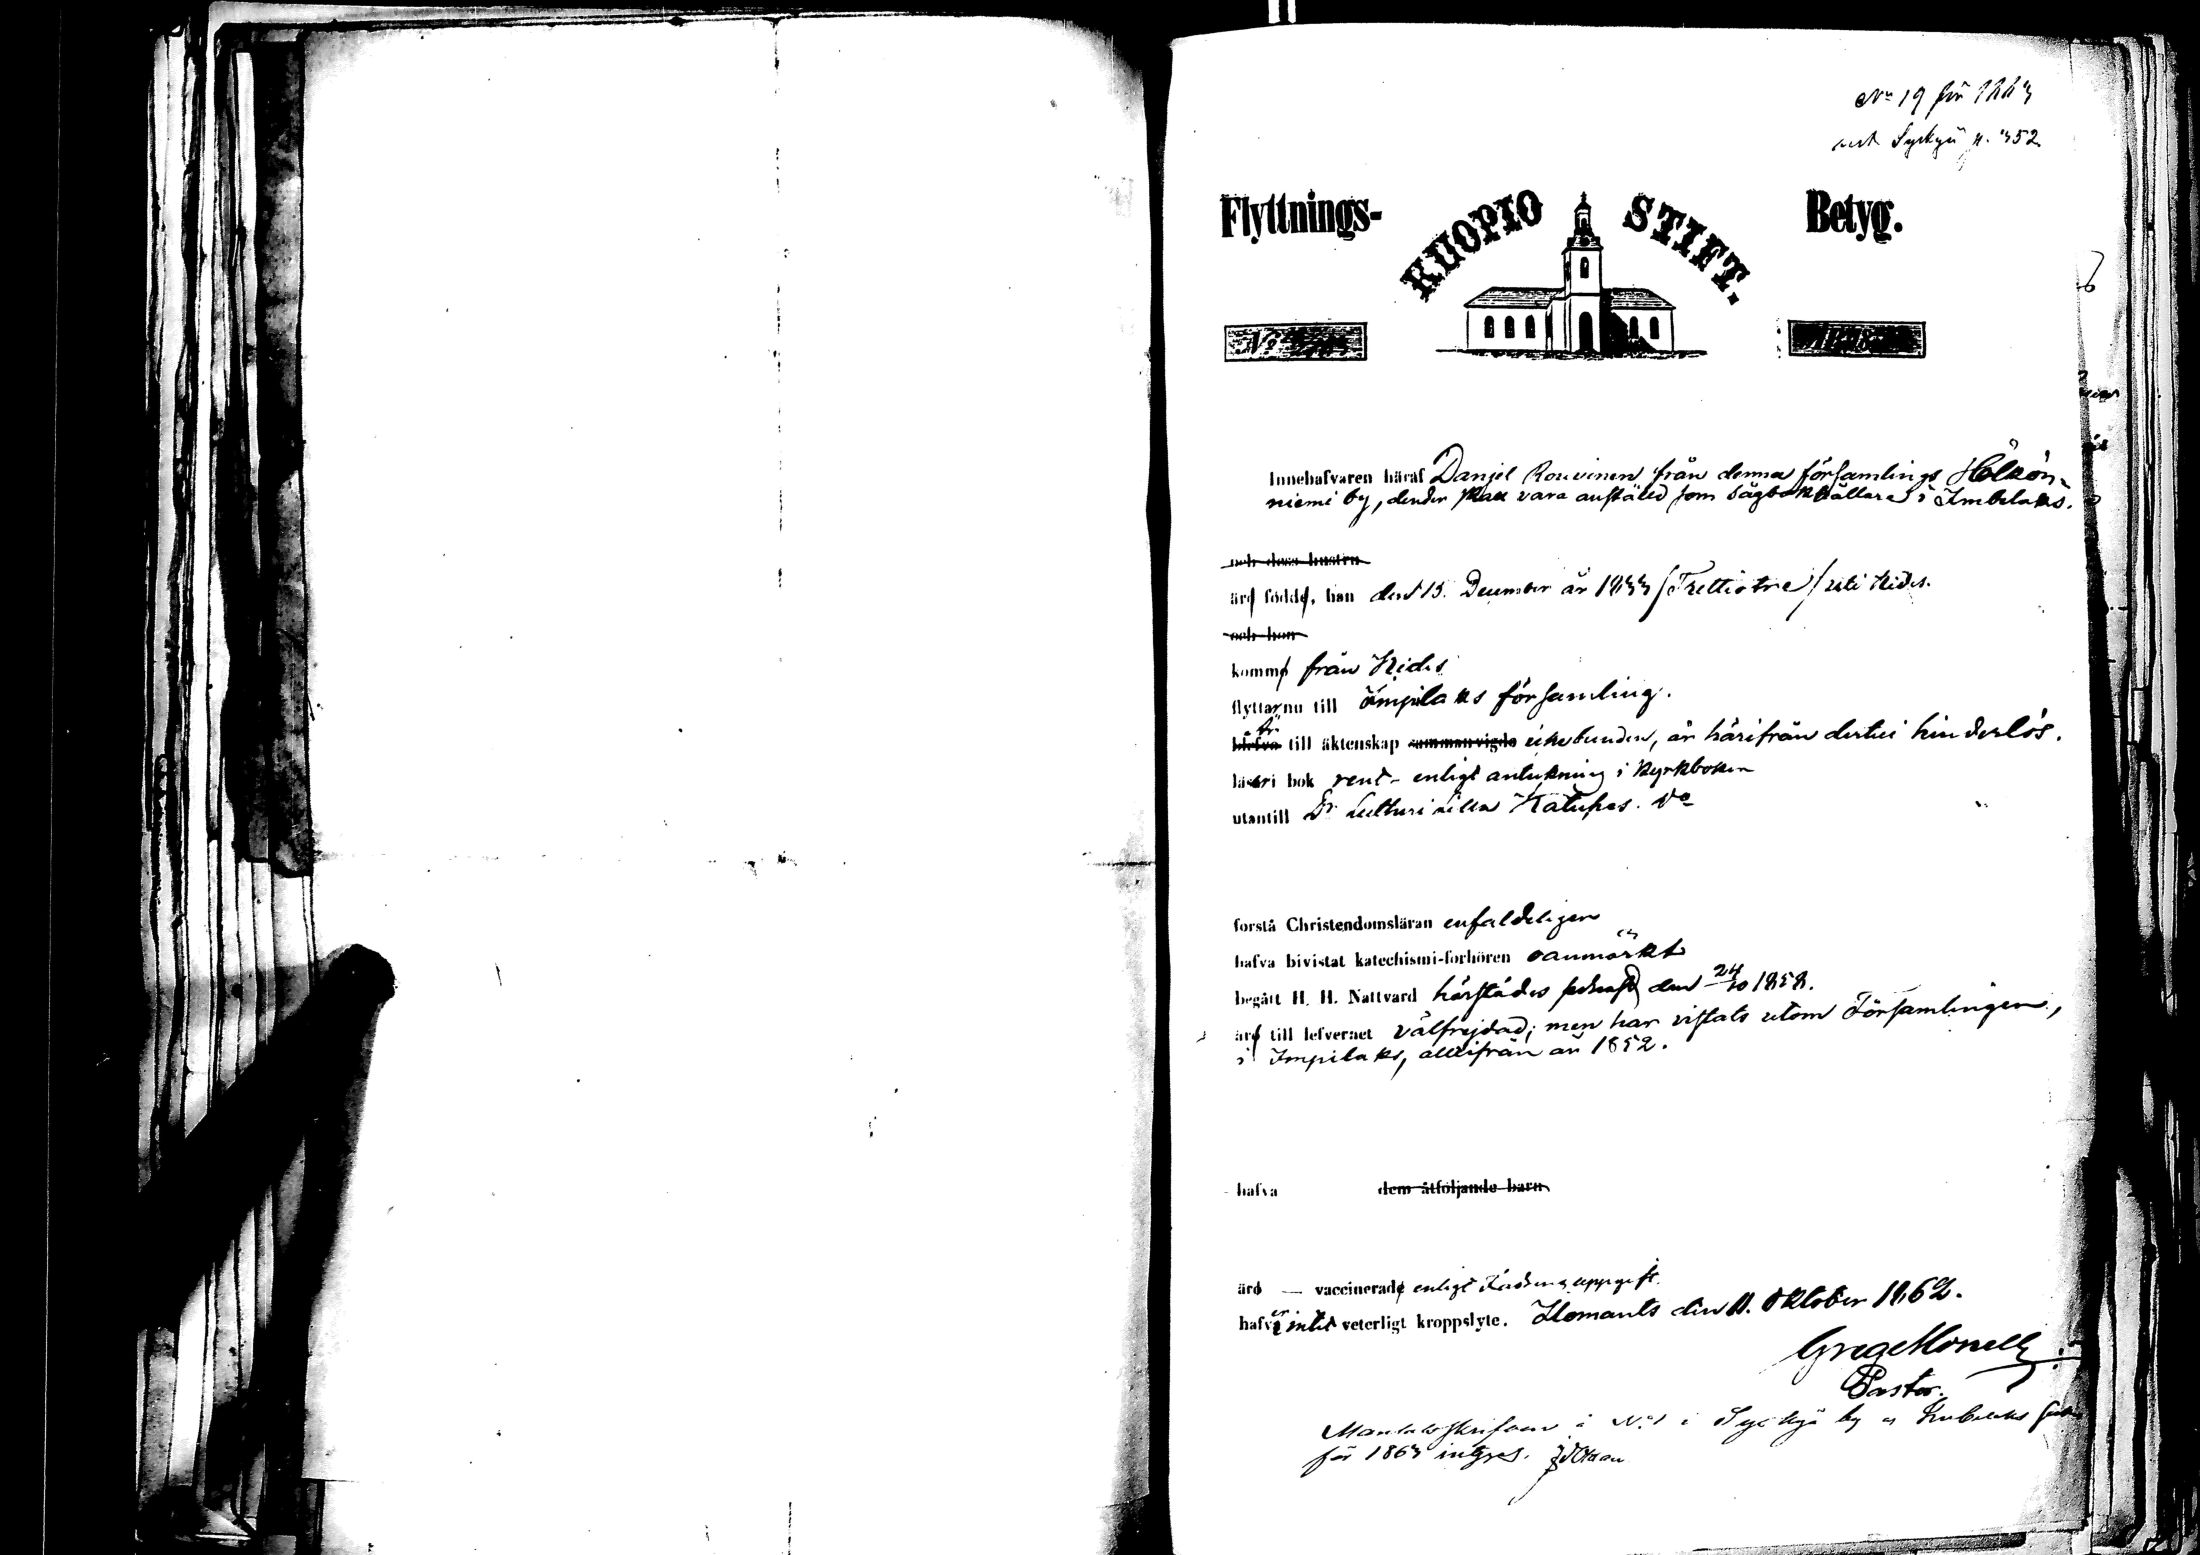 No 19 för 1863
Syskyä p. 352
Flyttnings- KUOPIO STIFT. Betyg.
No
Innehafvaren häraf Danjel Rouvinen från denna församlings Hölkön-
niemi by, den der skall vara anstäld som Sågbokhållare i Imbelaks.
och dess hustru
äro födde, han den 13. December år 1833 /Trettiotre/ uti Kides.
och hon
komma från Kides
flytta nu till Impilaks församling.
blifva är till äktenskap sammanvigde icke bunden, är härifrån dertill hinderlös.
läser i bok rent enligt anteckning i Kyrkboken
utantill Dr Lutheri Lilla Katekes. do
förstå Christendomsläran enfaldeligen
hafva bivistat katechismi-förhören oanmärkt
begått H. H. Nattvard härstädes den 24/10 1858.
äro till lefvernet välfrejdad; men har vistats utom Församlingen,
i Impilaks, alltifrån år 1852.
hafva dem åtföljande barn
äro — vaccinerade enligt uppgift.
hafva intet veterligt kroppslyte. Ilomants den 11. Oktober 1862.
Pastor.
å No 1 i Syskyä by af Imbilaks
för 1863 intygas.